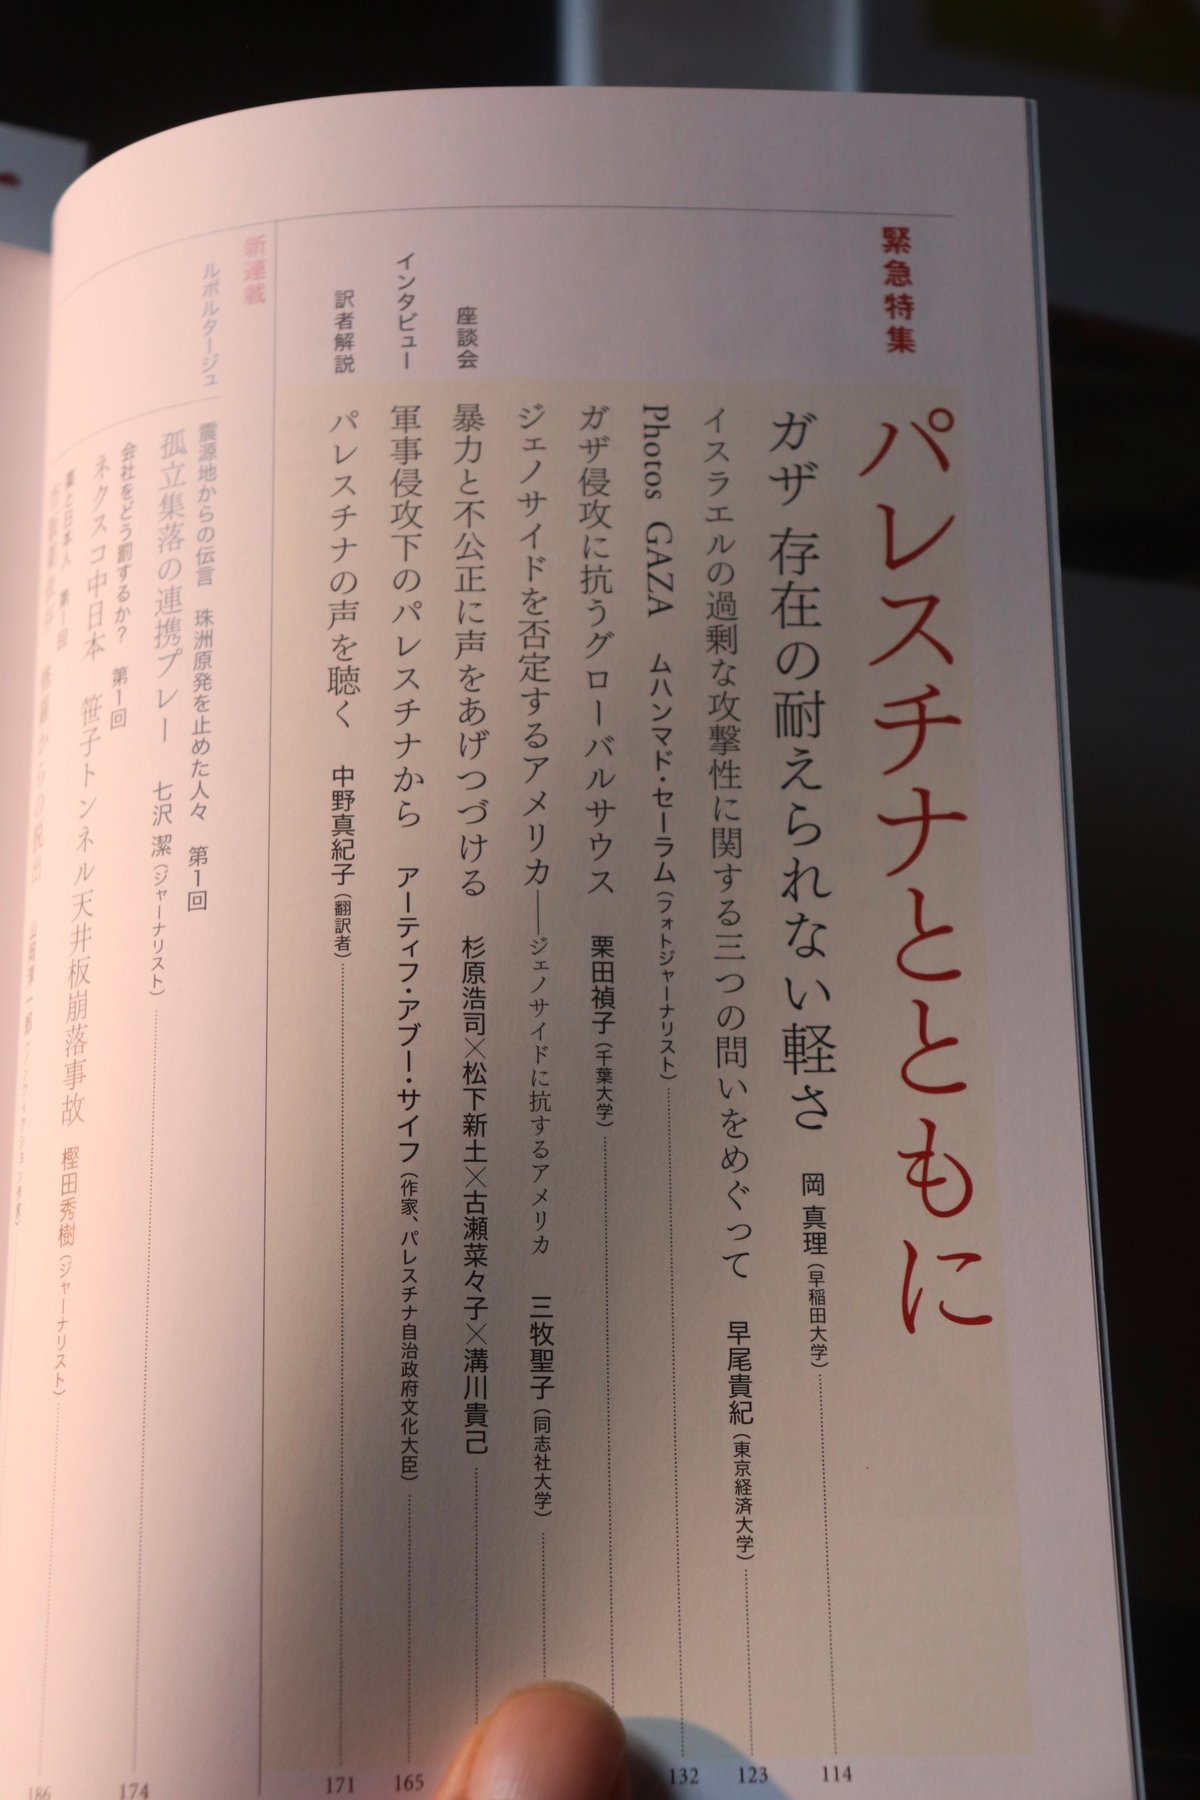 緊急特集
パレスチナとともに
ガザ 存在の耐えられない軽さ 岡 真理（早稲田大学） 114
イスラエルの過剰な攻撃性に関する三つの問いをめぐって 早尾貴紀（東京経済大学） 123
Photos GAZA ムハンマド・セーラム（フォトジャーナリスト） 132
ガザ侵攻に抗うグローバルサウス 栗田禎子（千葉大学）
ジェノサイドを否定するアメリカ──ジェノサイドに抗するアメリカ 三牧聖子（同志社大学）
座談会 暴力と不公正に声をあげつづける 杉原浩司×松下新土×古瀬菜々子×溝川貴己
インタビュー 軍事侵攻下のパレスチナから アーティフ・アブー・サイフ（作家、パレスチナ自治政府文化大臣） 165
訳者解説 パレスチナの声を聴く 中野真紀子（翻訳者） 171
新連載
ルポルタージュ 震源地からの伝言 珠洲原発を止めた人々 第1回
孤立集落の連携プレー 七沢 潔（ジャーナリスト） 174
会社をどう罰するか？ 第1回
ネクスコ中日本 笹子トンネル天井板崩落事故 樫田秀樹（ジャーナリスト） 186
薬と日本人 第1回
からの脱出 山岡淳一郎（ノンフィクション作家）